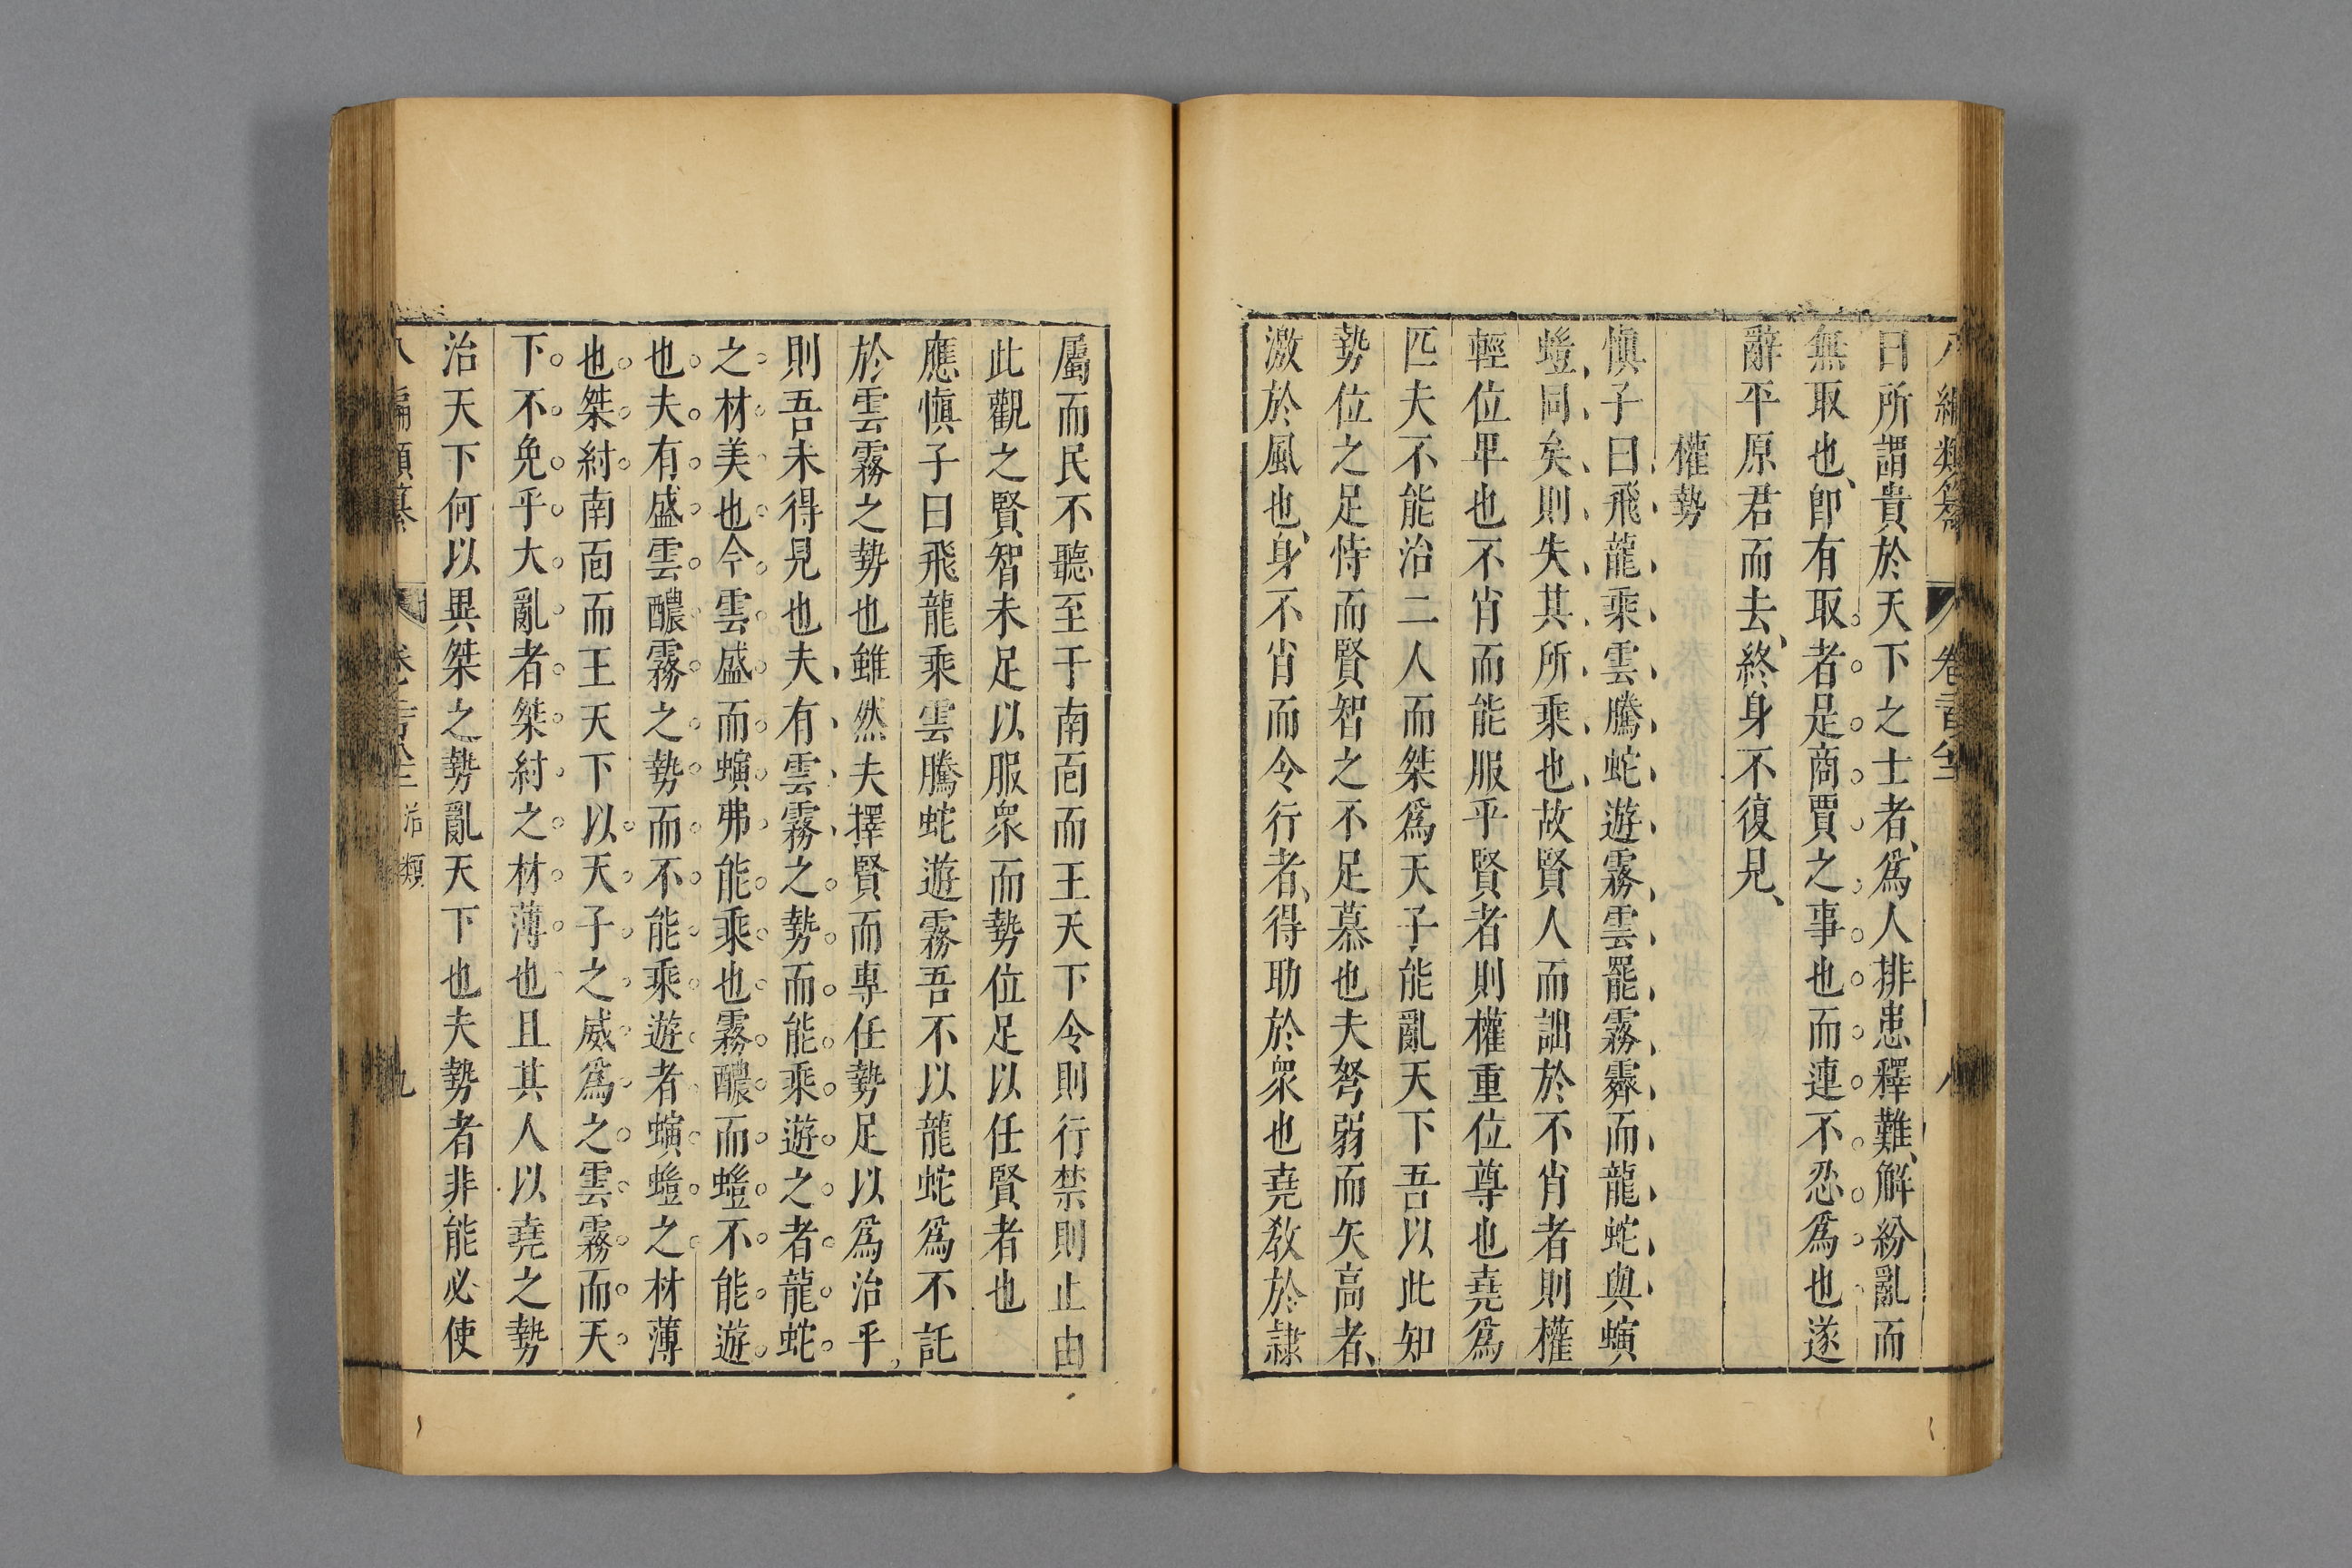 八編類纂 卷 八
曰所謂貴於天下之士者、爲人排患釋難、解紛亂而
無取也、卽有取者是商賈之事也而連不忍爲也遂
辭平原君而去、終身不復見、
權勢
愼子曰飛龍乘雲騰蛇遊霧雲罷霧霽而龍蛇與螾
螘同矣則失其所乘也故賢人而詘於不肖者則權
輕位卑也不肖而能服乎賢者則權重位尊也堯爲
匹夫不能治二人而桀爲天子能亂天下吾以此知
勢位之足恃而賢智之不足慕也夫弩弱而矢高者、
激於風也、身不肖而令行者、得助於衆也堯敎於隷
屬而民不聽至于南面而王天下令則行禁則止由
此觀之賢智未足以服衆而勢位足以任賢者也
應愼子曰飛龍乘雲騰蛇遊霧吾不以龍蛇爲不託
於雲霧之勢也雖然夫擇賢而專任勢足以爲治乎
則吾未得見也夫有雲霧之勢而能乘遊之者龍蛇
之材美也今雲盛而螾弗能乘也霧醲而螘不能遊
也夫有盛雲醲霧之勢而不能乘遊者螾螘之材薄
也桀紂南面而王天下以天子之威爲之雲霧而天
下不免乎大亂者桀紂之材薄也且其人以堯之勢
治天下何以異桀之勢亂天下也夫勢者非能必使
八編類纂 卷 治類 九